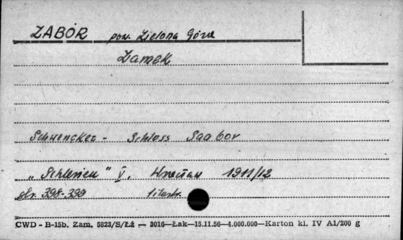 ZABÓR pow. Zielona Góra
Zamek
Schwencker - Schloss Saabor
"Schlesien" V. Wrocław 1911/12
str. 398-399
CWD - B-15b. Zam. 5823/S/Łż — 3016—Łak—15.11.56—4.000.000—Karton kl. IV A1/200 g